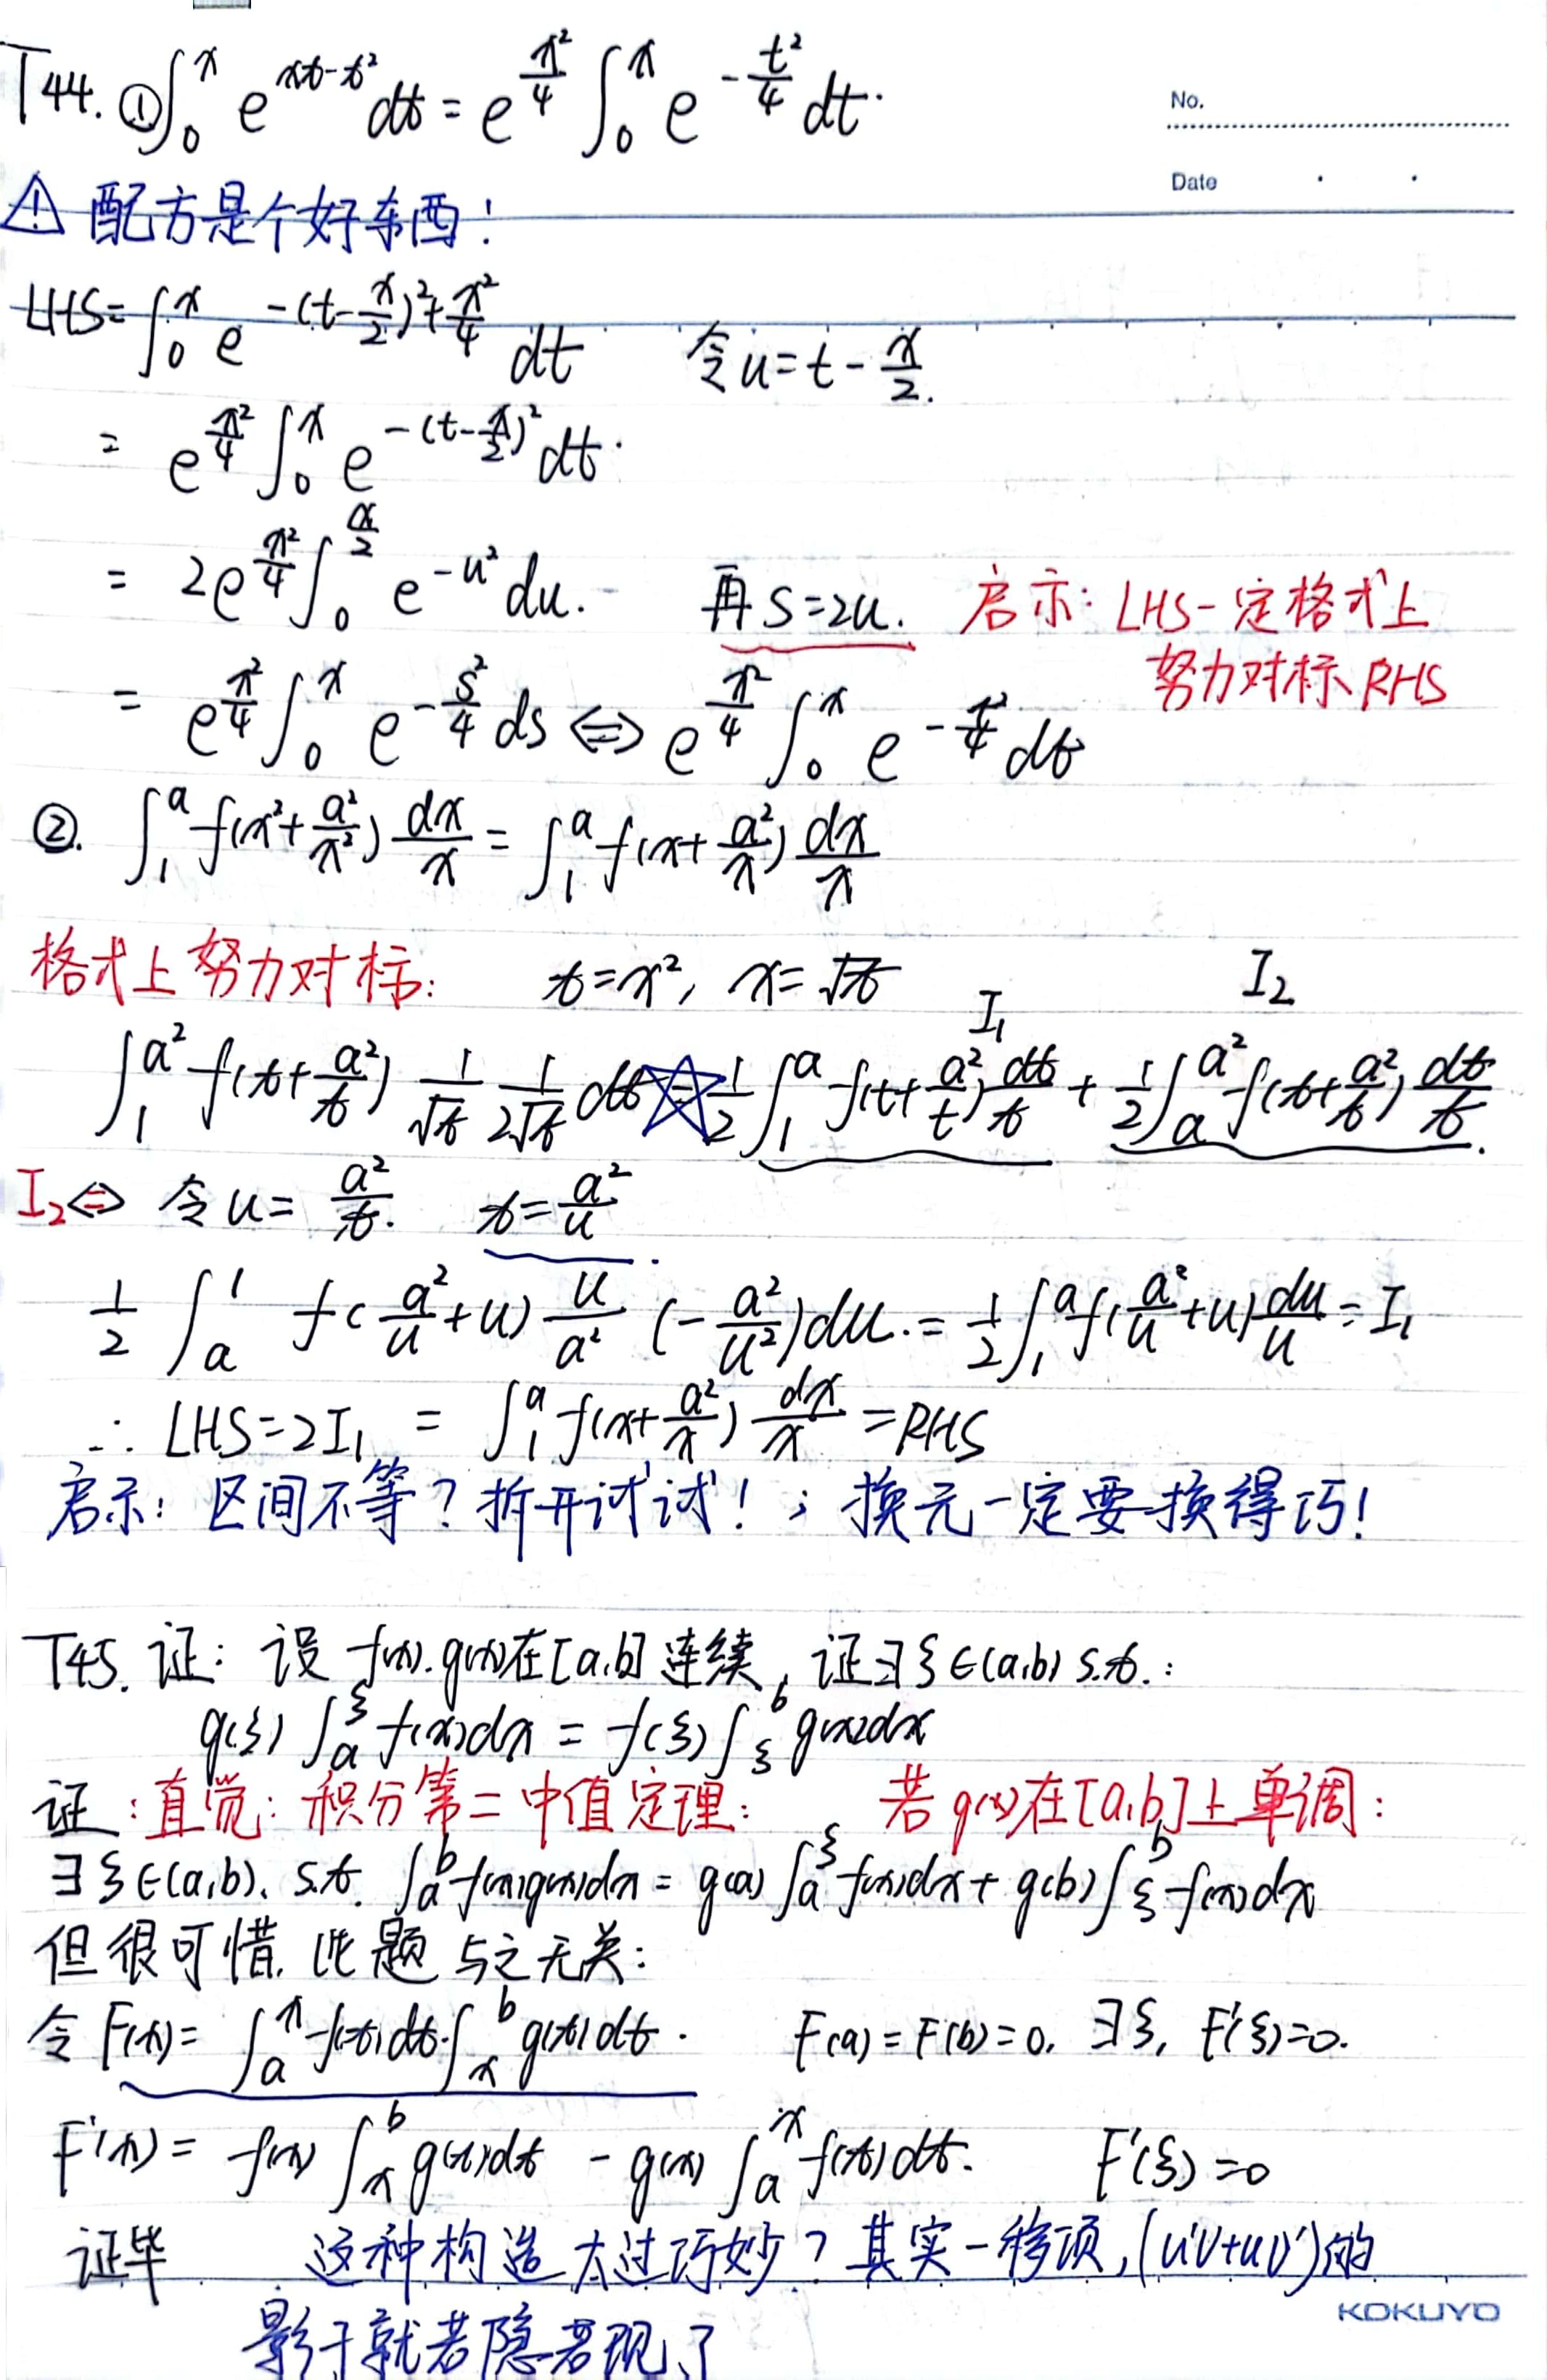 T44. ① ∫₀ˣ e^(xt-t²) dt = e^(x²/4) ∫₀ˣ e^(-t²/4) dt.
No.
Date
⚠ 配方是个好东西!
LHS = ∫₀ˣ e^(-(t-x/2)²+x²/4) dt 令u=t-x/2.
= e^(x²/4) ∫₀ˣ e^(-(t-x/2)²) dt.
= 2e^(x²/4) ∫₀^(x/2) e^(-u²) du. 再S=2u. 启示: LHS一定格式上
努力对标RHS
= e^(x²/4) ∫₀ˣ e^(-s²/4) ds ⇔ e^(x²/4) ∫₀ˣ e^(-t²/4) dt
②. ∫₁ᵃ f(x²+a²/x²) dx/x = ∫₁ᵃ f(x+a²/x) dx/x
格式上努力对标: t=x², x=√t
I₁ I₂
∫₁^(a²) f(t+a²/t) 1/√t 1/(2√t) dt ☆= 1/2 ∫₁ᵃ f(t+a²/t) dt/t + 1/2 ∫ₐ^(a²) f(t+a²/t) dt/t.
I₂⇔ 令u=a²/t. t=a²/u.
1/2 ∫ₐ¹ f(a²/u+u) u/a² (-a²/u²)du. = 1/2 ∫₁ᵃ f(a²/u+u) du/u = I₁
∴ LHS=2I₁ = ∫₁ᵃ f(x+a²/x) dx/x = RHS
启示: 区间不等? 拆开试试! ; 换元一定要换得巧!
T45. 证: 设 f(x).g(x)在[a,b]连续, 证∃ξ∈(a,b) s.t.:
g(ξ) ∫ₐ^ξ f(x)dx = f(ξ) ∫_ξ^b g(x)dx
证:直觉: 积分第二中值定理: 若g(x)在[a,b]上单调:
∃ξ∈(a,b). s.t. ∫ₐᵇ f(x)g(x)dx = g(a) ∫ₐ^ξ f(x)dx + g(b) ∫_ξ^b f(x)dx
但很可惜, 此题与之无关:
令F(x)= ∫ₐˣ f(t)dt·∫ₓᵇ g(t)dt. F(a)=F(b)=0, ∃ξ, F'(ξ)=0.
F'(x)= f(x) ∫ₓᵇ g(t)dt - g(x) ∫ₐˣ f(t)dt. F'(ξ)=0
证毕 这种构造太过巧妙? 其实一移项, (u'v+uv')的
KOKUYO
影子就若隐若现了